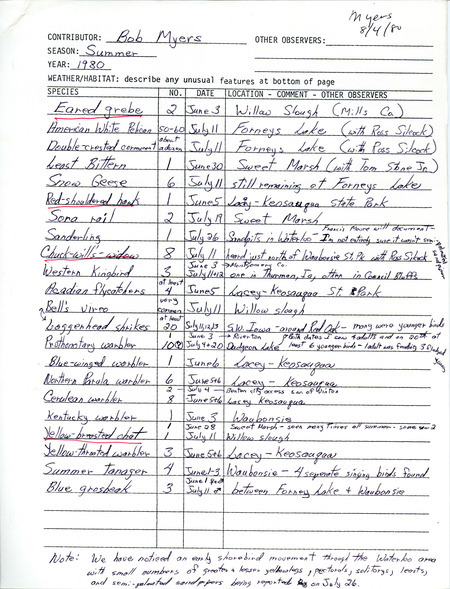 Myers
8/4/80
CONTRIBUTOR: Bob Myers OTHER OBSERVERS:
SEASON: Summer
YEAR: 1980
WEATHER/HABITAT: describe any unusual features at bottom of page
SPECIES NO. DATE LOCATION - COMMENT - OTHER OBSERVERS
Eared grebe 2 June 3 Willow Slough (Mills Co.)
American White Pelican 50-60 July 11 Forneys Lake (with Ross Silcock)
Double-crested cormorant about July 11 Forneys Lake (with Ross Silcock)
Least Bittern 1 June 30 Sweet Marsh (with Tom Stone Jr.)
Snow Geese 6 July 11 still remaining at Forneys Lake
Red-shouldered hawk 1 June 5 Lacey-Keosauqua State Park
Sora rail 2 July 19 Sweet Marsh
Francis Moore will document -
Sanderling 1 July 26 Sandpits in Waterloo - I'm not entirely sure it wasn't
Chuck-will's-widow 8 July 11 heard just north of Waubonsie St. Pk with Ross Silcock
June 3 Montgomery Co.
Western Kingbird 3 July 11+12 one in Thurman, Ia, often in Council Bluffs
Acadian flycatchers at least 4 June 5 Lacey-Keosauqua St. Park
Bell's vireo very common July 11 Willow slough
Loggerhead shrikes at least 20 July 11,12,13 S.W. Iowa - around Red Oak - many were younger birds
June 3 → Riverton
Prothonotary warbler 10 July 4+20 Dudgeon Lake
Blue-winged warbler 1 June 6 Lacey-Keosauqua
Northern Parula warbler 6 June 5+6 Lacey-Keosauqua
2 - July 4 - Benton city access
Cerulean warbler 8 June 5+6 Lacey Keosauqua
Kentucky warbler 1 June 3 Waubonsie
1 June 28 Sweet Marsh - seen many times all summer - same
Yellow-breasted chat 1 July 11 Willow slough
Yellow-throated warbler 3 June 5+6 Lacey-Keosauqua
Summer tanager 4 June 1-3 Waubonsie - 4 seperate singing birds found
Blue grosbeak 3 July 11 between Forney Lake + Waubonsie
Note: We have noticed an early shorebird movement through the Waterloo area
with small numbers of greater + lesser yellowlegs, pectorals, solitarys, leasts,
and semi-palmated sandpipers being reported on July 26.